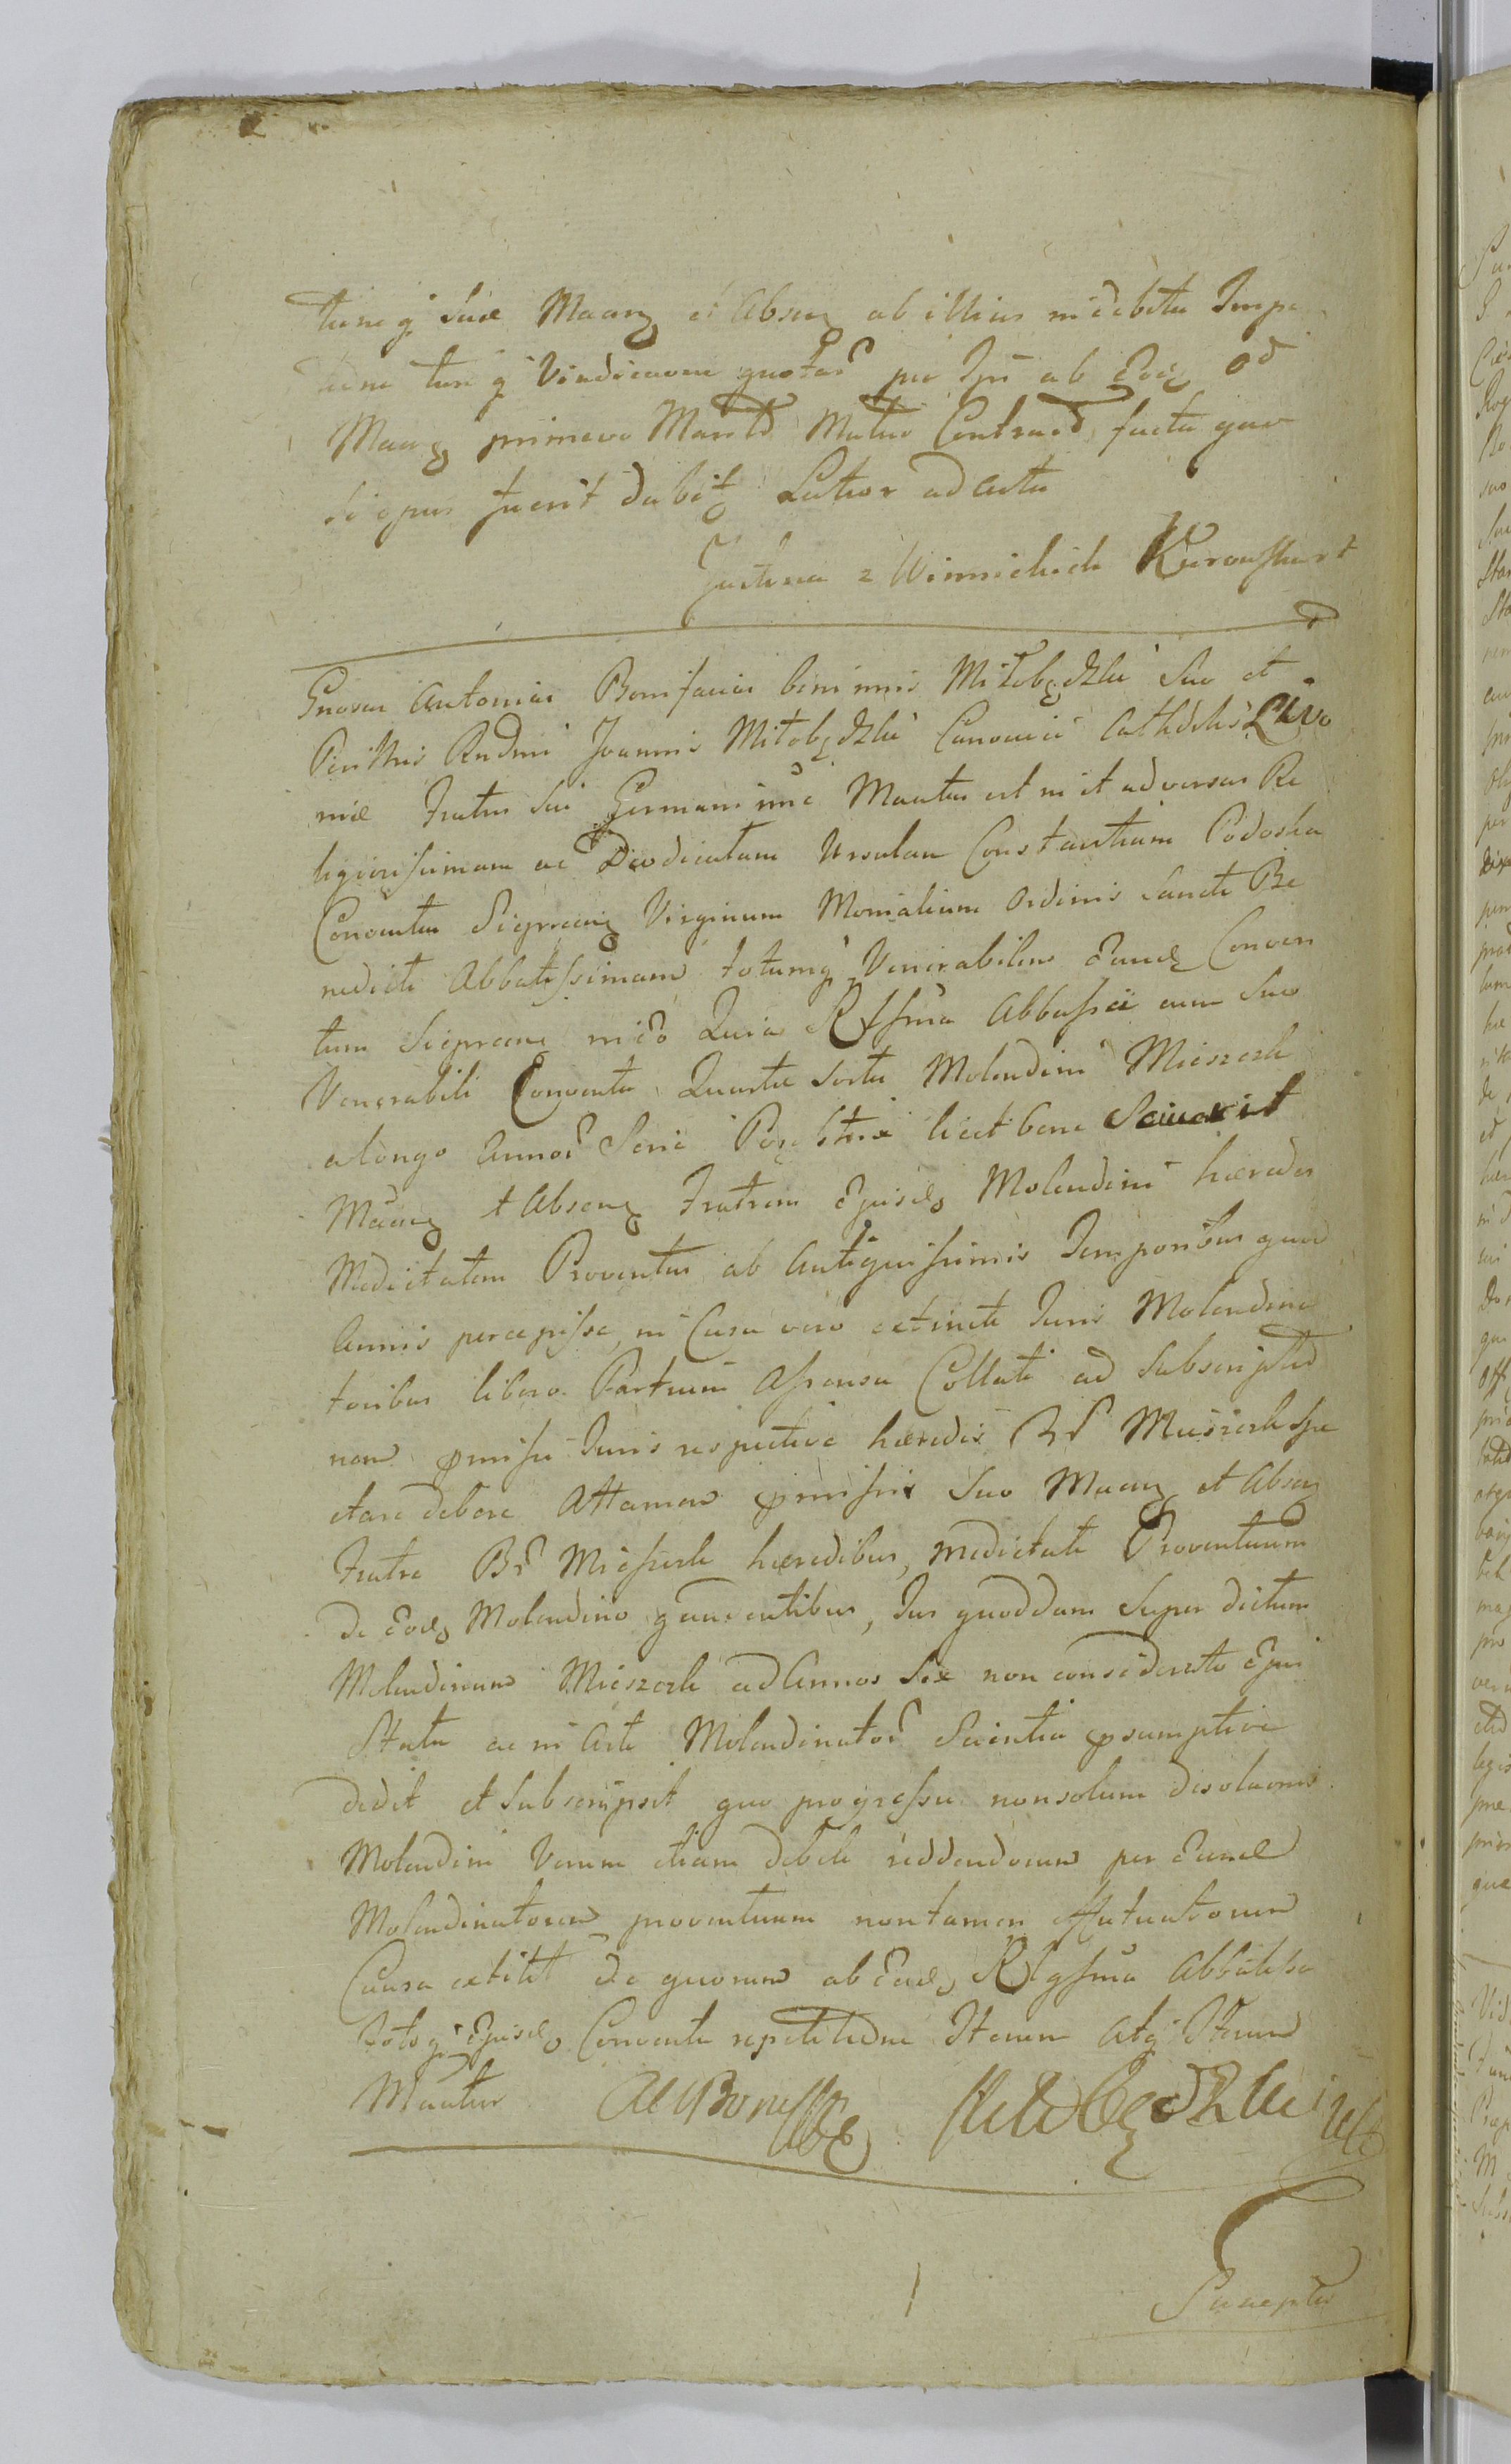 tum q̃ suæ Maang et Absen ab illius indebita Impe
tum q̃ Vindicaom per Ipm ab Eod
Maang primevo Marito Mutuo Contracto facta quar
si opus fuerit dabit Latior ad acta
Justina z Winnickich Kurowska
Gnosus Antonius Bonifacius binominis Miłobędzki Suo et
Perillris Rndmi Joannis Miłobędzki Canonici Cathdlis Livo
niæ Fratris sui Germani nnē Maatus est nit adversus Re
ligiosissimam ac Deodicatam Ursulam Constantiam Podoska
Conventus Sieprcens Virginum Monialium Ordinis Sancti Be
nedicti Abbatissimam totumq̃ Venerabilem Eund Conven
tum Sieprcens nieo Quia Rlssma Abbatssa cum suo
Venerabili Conventu Quartæ sortis Molendini Mieszczk
a longo Annor Serie licet bene Sciverit
Maang et Absenq Fratrem Ejusd Molendini hæredes
Medietatem Proventus ab Antiquissimis Temporibus quovis
Annis percepisse, in Casu vero extincti Juris Molendina
toribus libero Partium Assensu Collati ad Subscriptio
nem pmissi Juris respective hæredis Br Mieszczk spe
ctare debere Attamen pmissis Suo Maang et Absen
Fratre Br Mieszczk hæredibus, medietate Proventuum
de Eod Molendino gaudentibus, Jus quoddam Super dictum
Molendinum Mieszczk ad Annos Sex non considerato Ejus
Statu ac in Arte Molendinator Scientia psumptive
dedit et Subscripsit quo progressu non solum disolutionis
Molendini Verum etiam debite reddendorum per Eund
Molendinatorem proventuum non tamen
Causa extitit de quorum ab Ead Rlgsma Abbatissa
totoq̃ Ejusd Conventu repetitione Iterum Atq̃ Iterum
Maatur A Boniff Miłobędzki mp
Suscepta